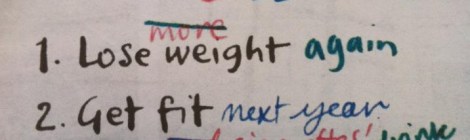 more
1. Lose weight again
2. Get fit next year
this! drink